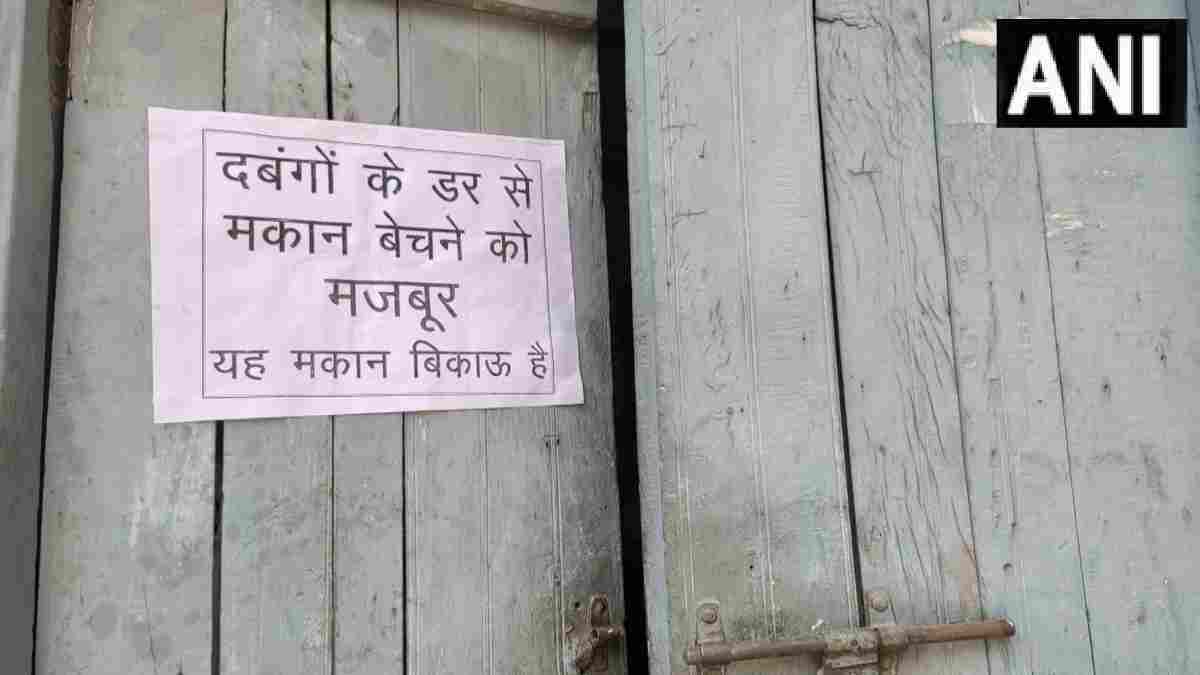 ANI
दबंगों के डर से
मकान बेचने को
मजबूर
यह मकान बिकाऊ है